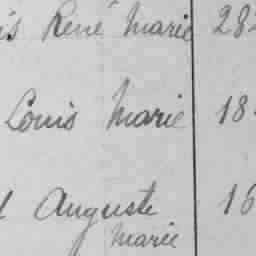 is René Marie 28
Louis Marie 18
Auguste 16
Marie